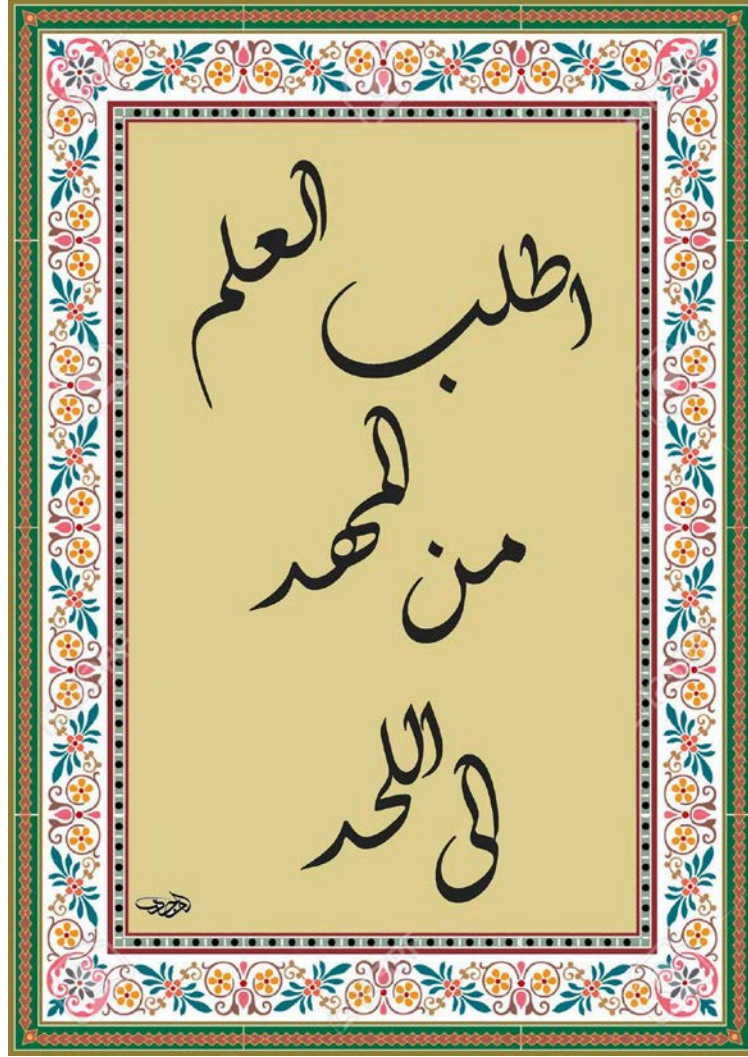 اطلب العلم
من المهد
الى اللحد